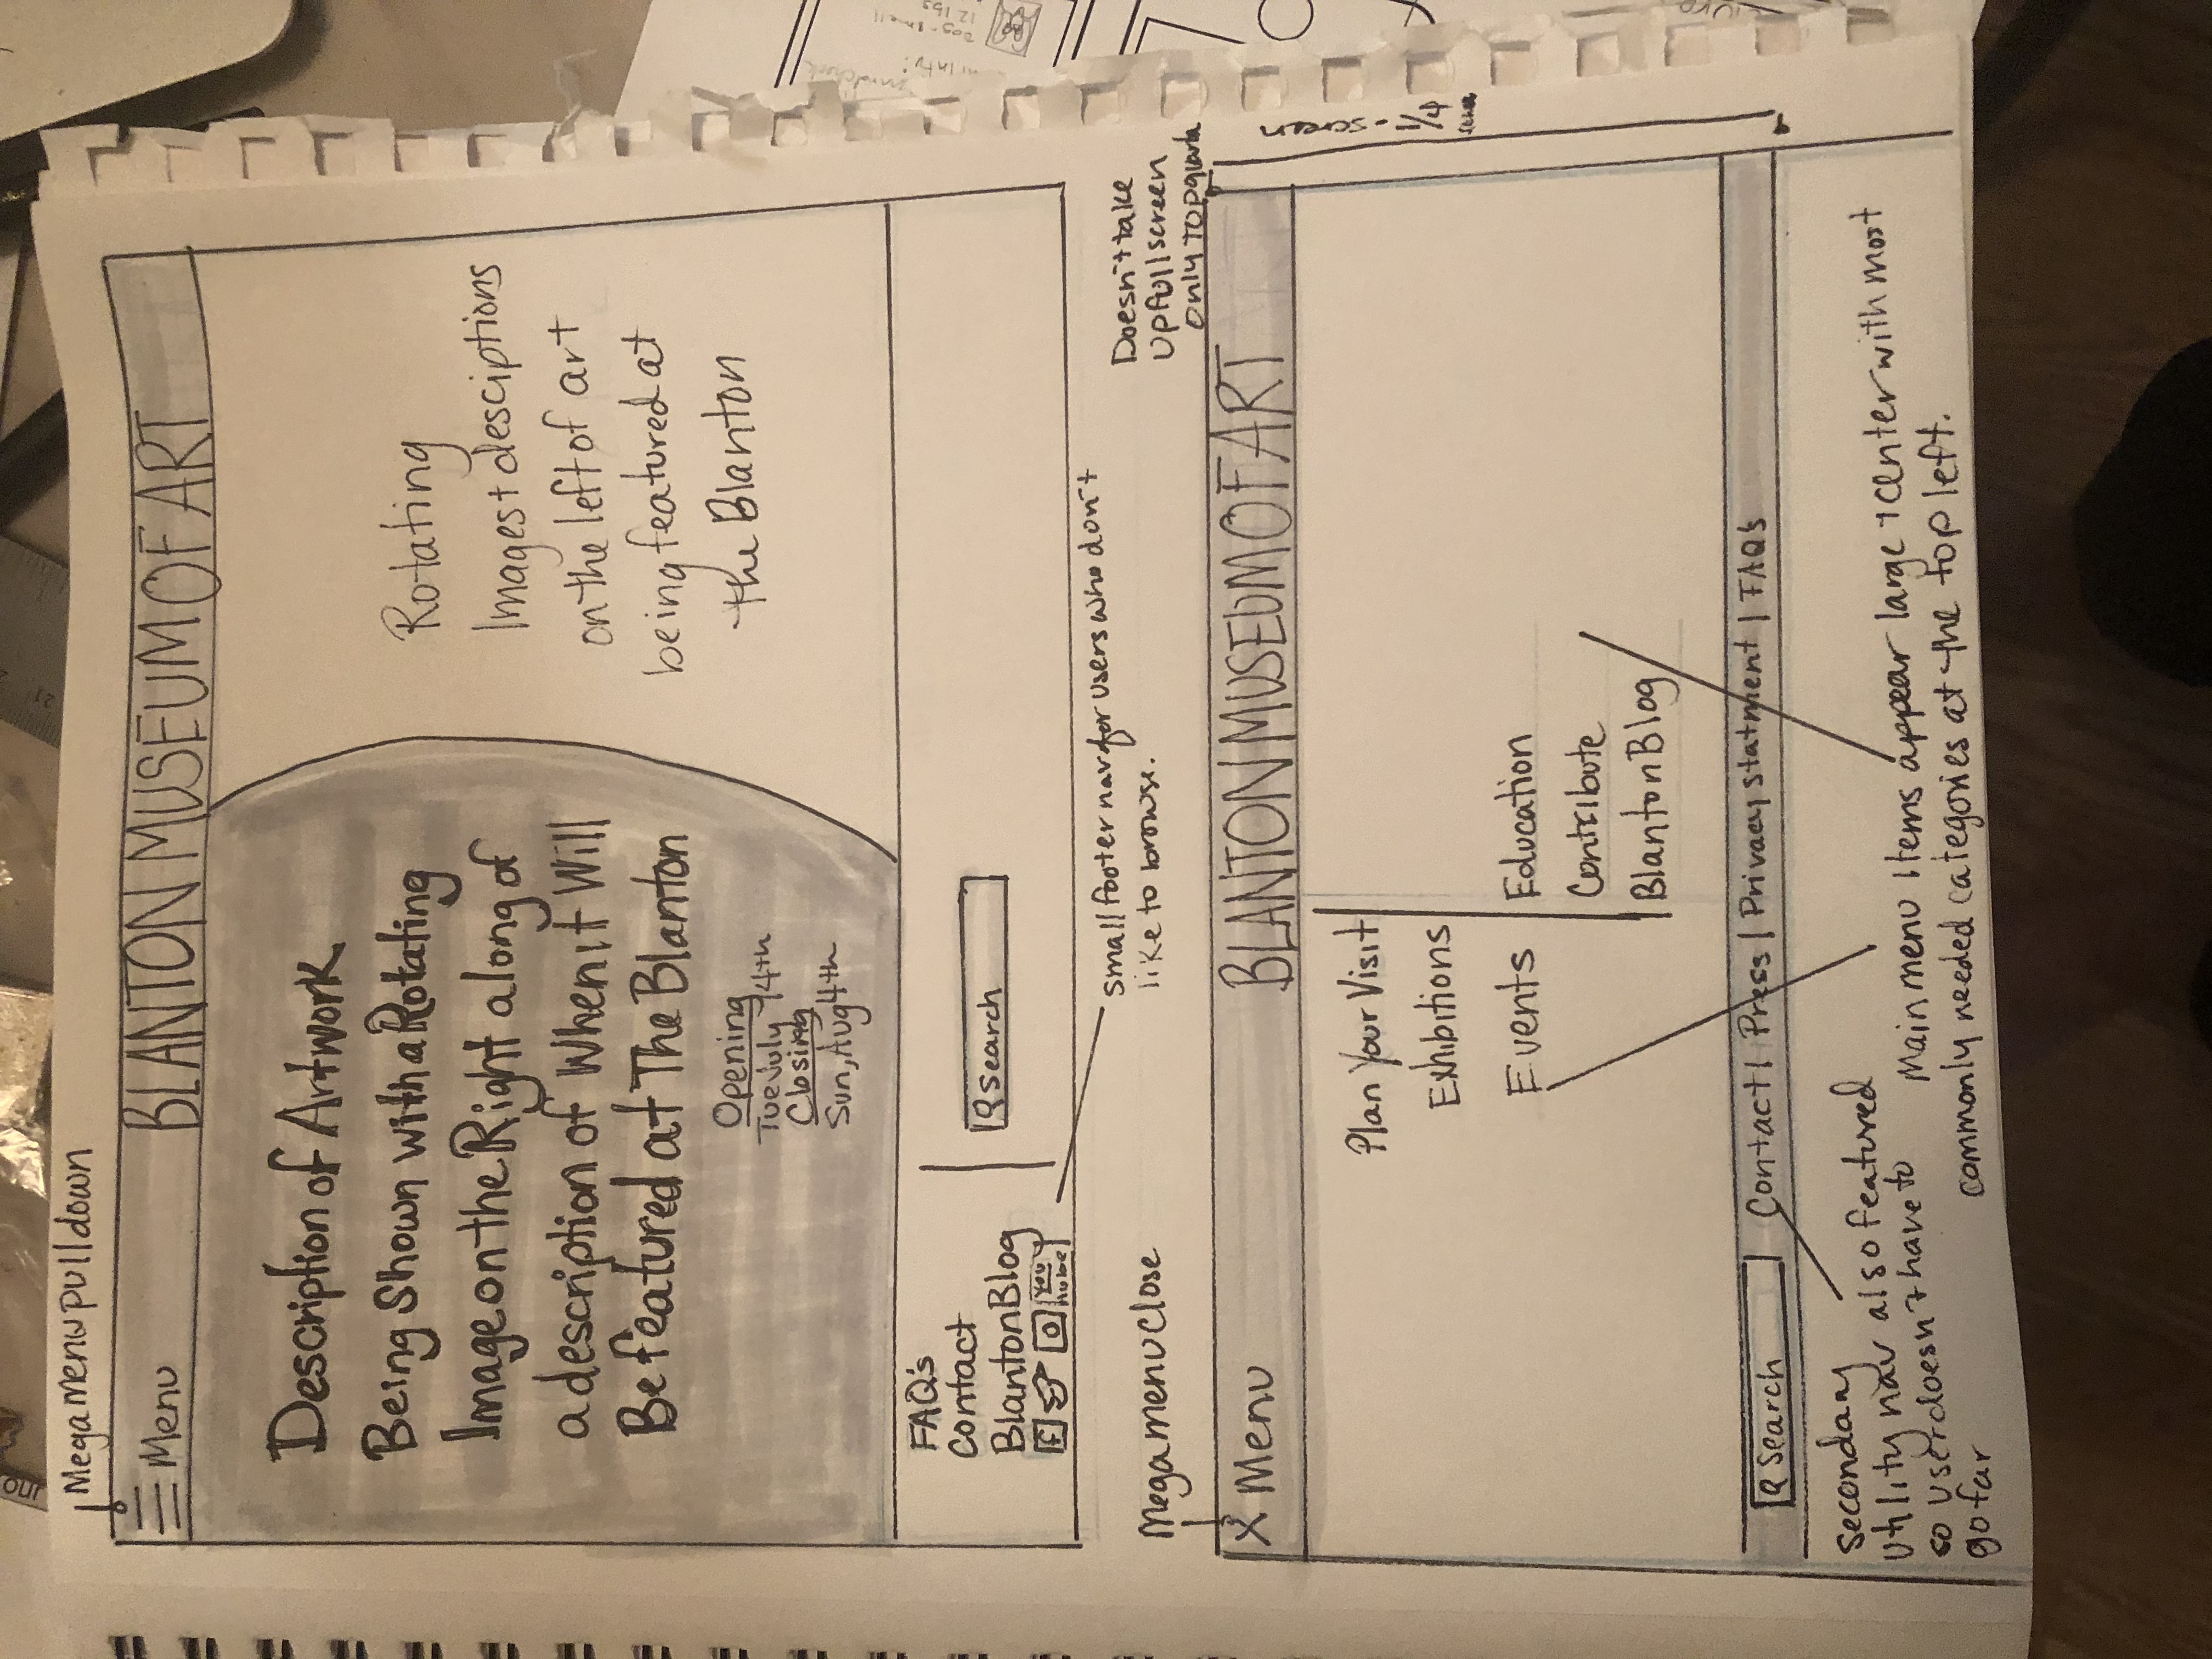 Mega menu pull down
Menu
BLANTON MUSEUM OF ART
Description of Artwork
Being Shown with a Rotating
Image on the Right along of
a description of When it Will
Be featured at The Blanton
Opening
Tue July 14th
Closing
Sun, Aug 4th
Rotating
Images + desciptions
on the left of art
being featured at
the Blanton
FAQ's
Contact
Blanton Blog
f
You
Search
small footer nav for users who don't
like to browse.
Mega menu Close
Doesn't take
up full screen
only top
X Menu
BLANTON MUSEUM OF ART
Plan Your Visit
Exhibitions
Events
Education
Contribute
Blanton Blog
1/4 - screen
Search
Contact | Press | Privacy statment | FAQ's
secondary
utility nav also featured
so user doesn't have to
go far
Main menu items appear large + center with most
commonly needed categories at the top left.
Dog - small
12 lbs